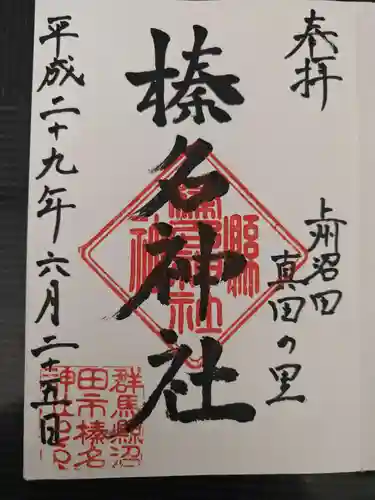 奉拝
上州沼田
真田の里
榛名神社
平成二十九年六月二十五日
群馬縣沼
田市榛名